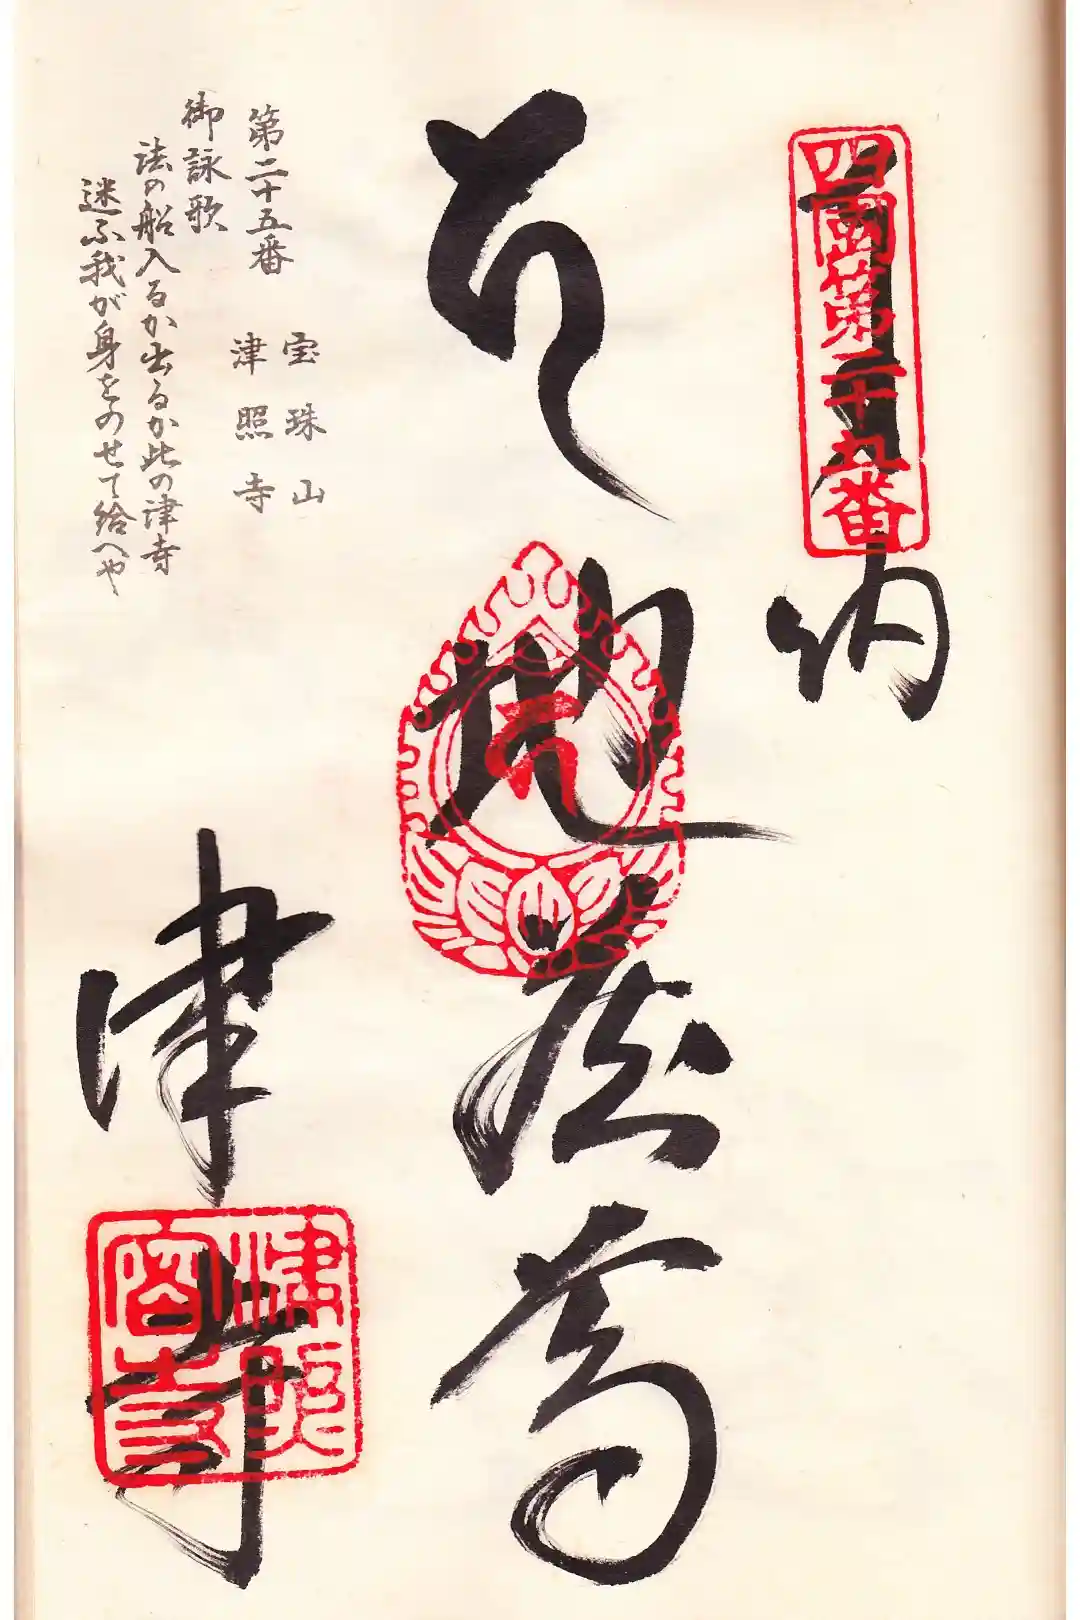 四國第二十五番
奉納
地蔵尊
宝珠山
第二十五番
津照寺
御詠歌
法の船入るか出るか此の津寺
迷ふ我が身をのせて給へや
津寺
津照
寺